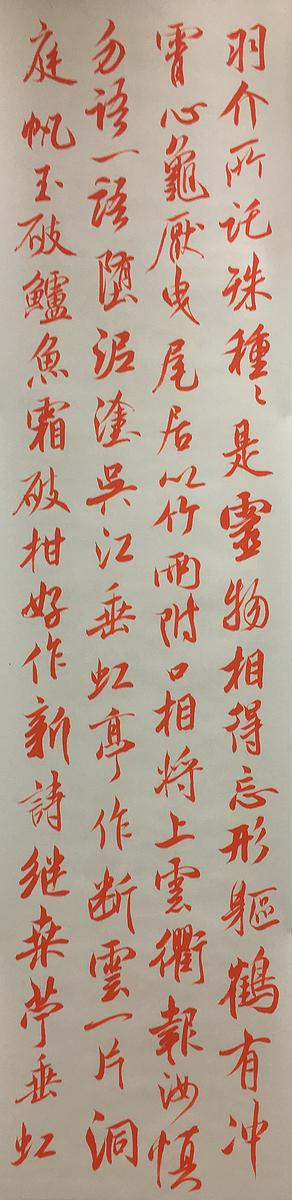 羽介所託殊種種是靈物相得忘形軀鶴有冲
霄心龜厭曳尾居以竹兩附口相將上雲衢報汝慎
勿語一語墮泥塗吳江垂虹亭作断雲一片洞
庭帆玉破鱸魚霜破柑好作新詩继桒苧垂虹